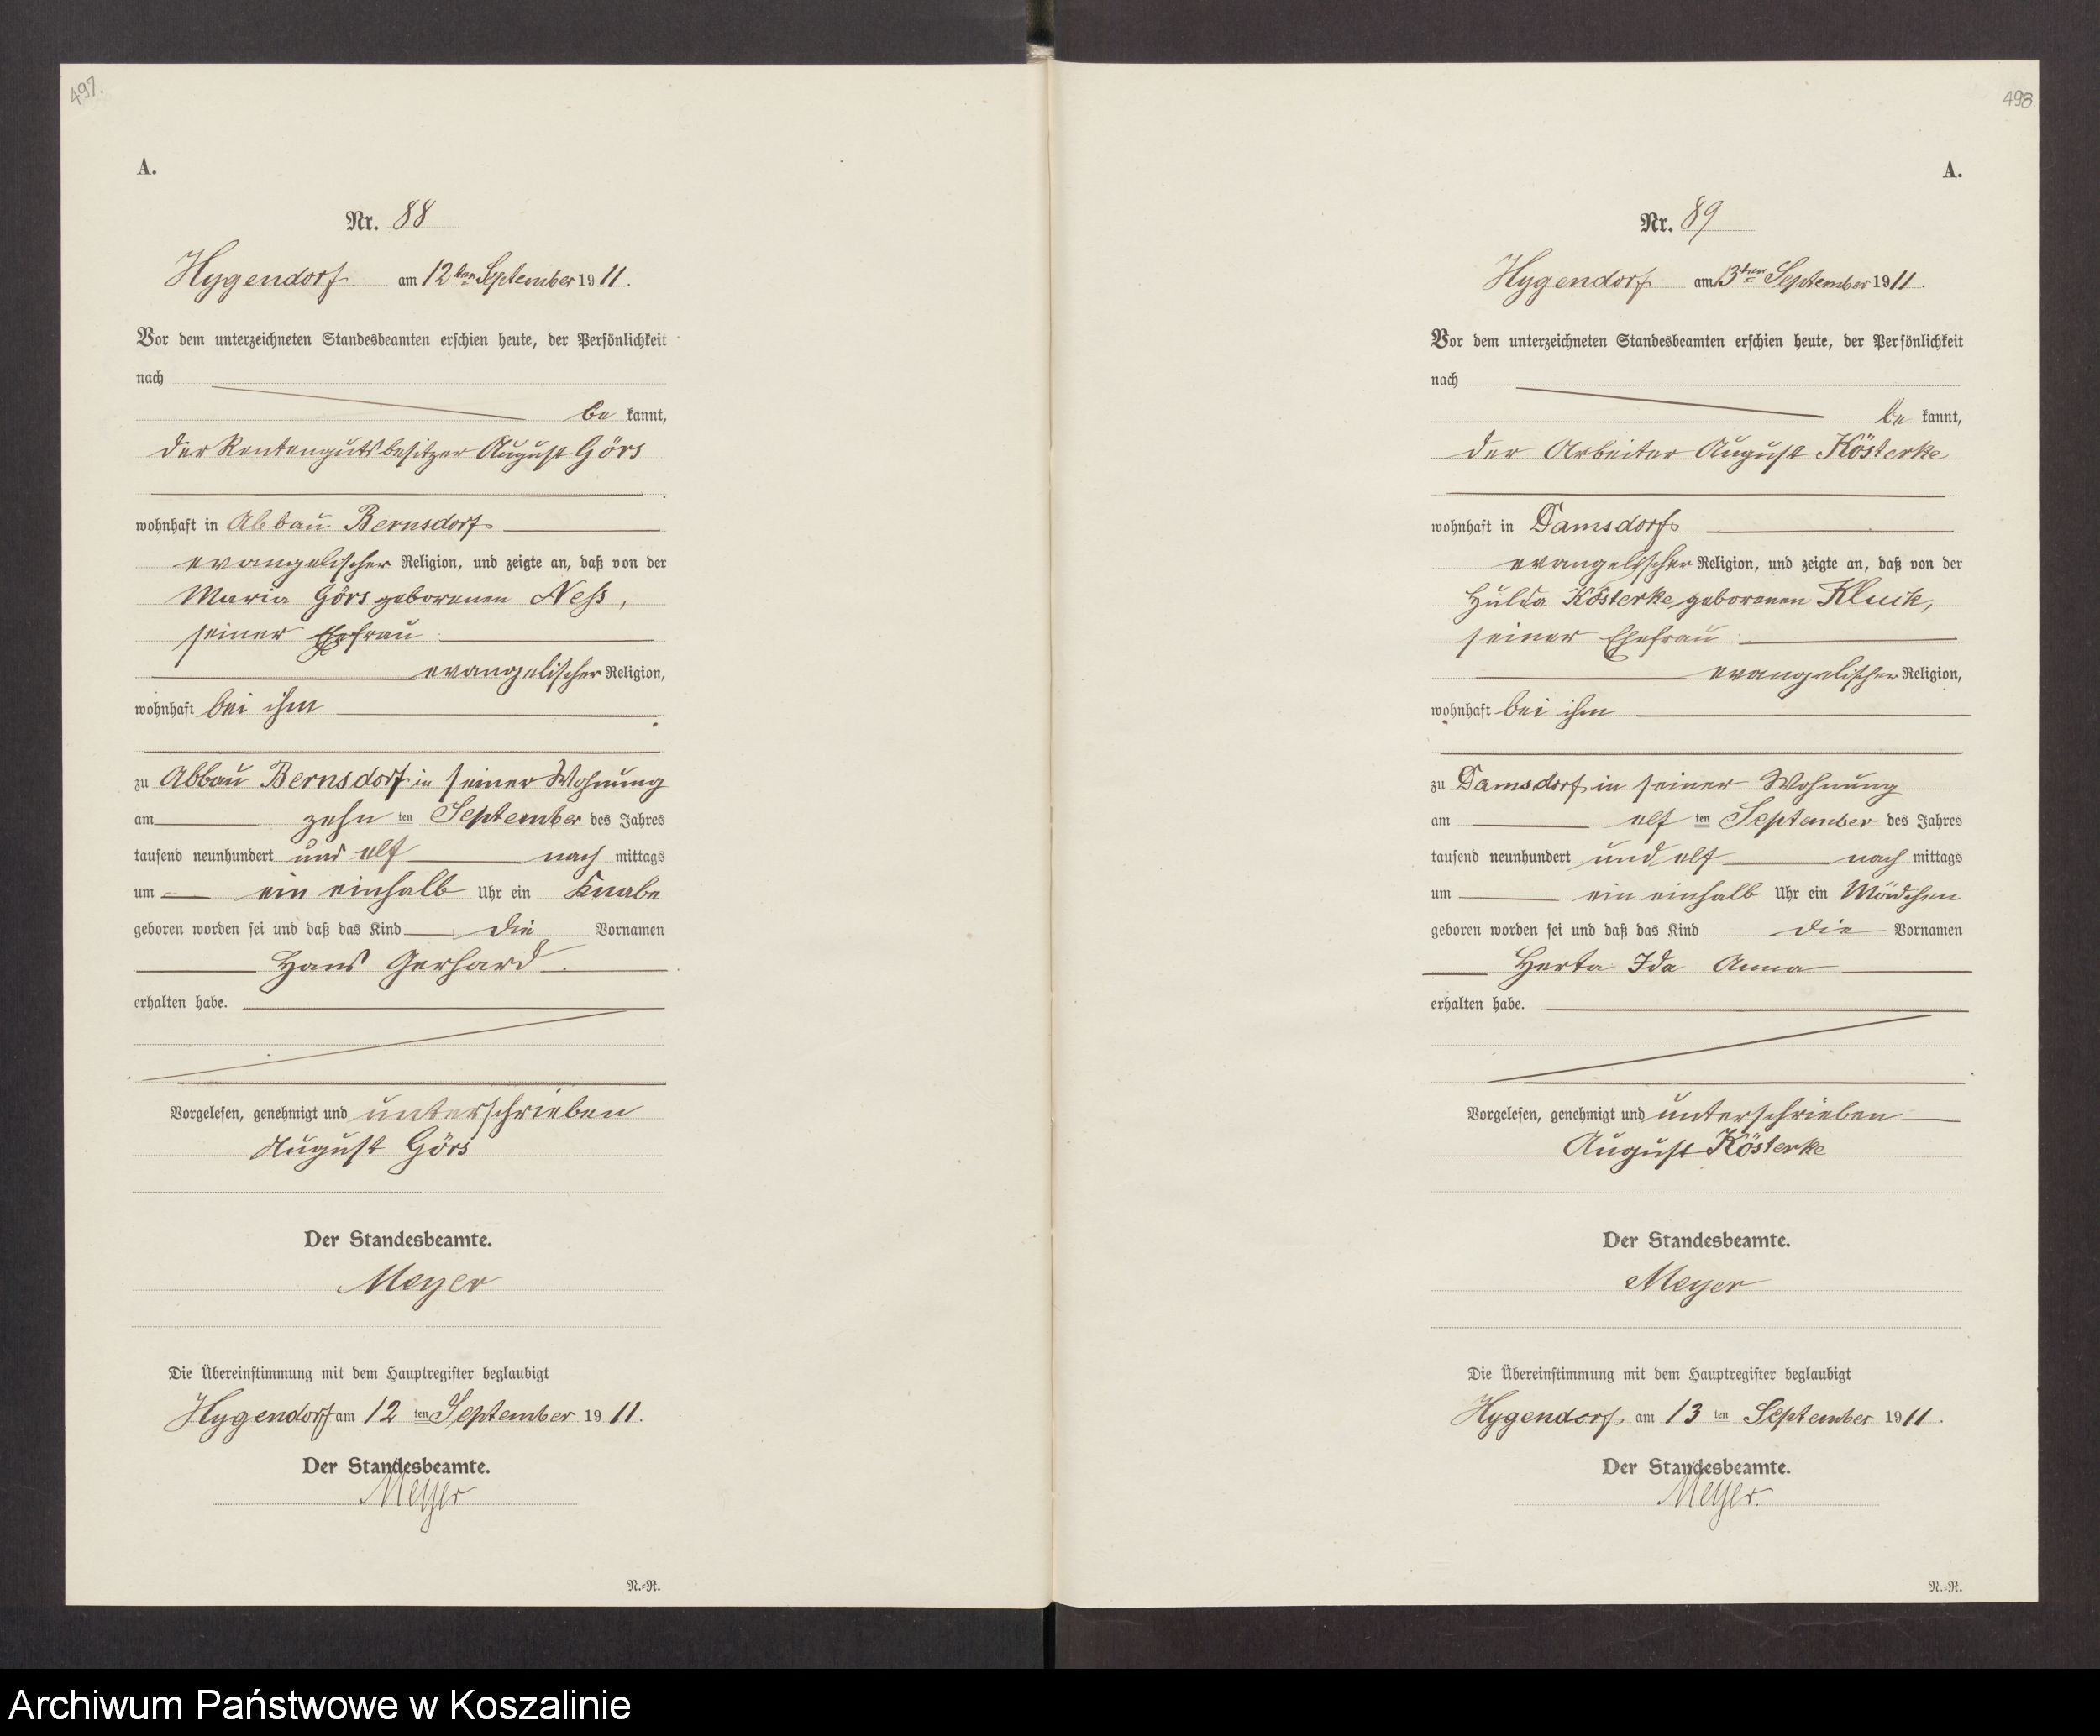 497.
A.
Nr. 88
Hygendorf am 12ten September 1911.
Vor dem unterzeichneten Standesbeamten erschien heute, der Persönlichkeit
nach
be kannt,
der Rentengutsbesitzer August Görs
wohnhaft in Abbau Bernsdorf
evangelischer Religion, und zeigte an, daß von der
Maria Görs geborenen Neß,
seiner Ehefrau
evangelischer Religion,
wohnhaft bei ihm
zu Abbau Bernsdorf in seiner Wohnung
am zehn ten September des Jahres
tausend neunhundert und elf nach mittags
um ein einhalb Uhr ein Knabe
geboren worden sei und daß das Kind die Vornamen
Hans Gerhard
erhalten habe.
Vorgelesen, genehmigt und unterschrieben
August Görs
Der Standesbeamte.
Meyer
Die Übereinstimmung mit dem Hauptregister beglaubigt
Hygendorf am 12 ten September 1911.
Der Standesbeamte.
Meyer
N.=R.
498.
A.
Nr. 89
Hygendorf am 13ten September 1911.
Vor dem unterzeichneten Standesbeamten erschien heute, der Persönlichkeit
nach
be kannt,
der Arbeiter August Kösterke
wohnhaft in Damsdorf
evangelischer Religion, und zeigte an, daß von der
Hulda Kösterke geborenen Kluck,
seiner Ehefrau
evangelischer Religion,
wohnhaft bei ihm
zu Damsdorf in seiner Wohnung
am elf ten September des Jahres
tausend neunhundert und elf nach mittags
um ein einhalb Uhr ein Mädchen
geboren worden sei und daß das Kind die Vornamen
Herta Ida Anna
erhalten habe.
Vorgelesen, genehmigt und unterschrieben
August Kösterke
Der Standesbeamte.
Meyer
Die Übereinstimmung mit dem Hauptregister beglaubigt
Hygendorf am 13 ten September 1911.
Der Standesbeamte.
Meyer.
N.=R.
Archiwum Państwowe w Koszalinie